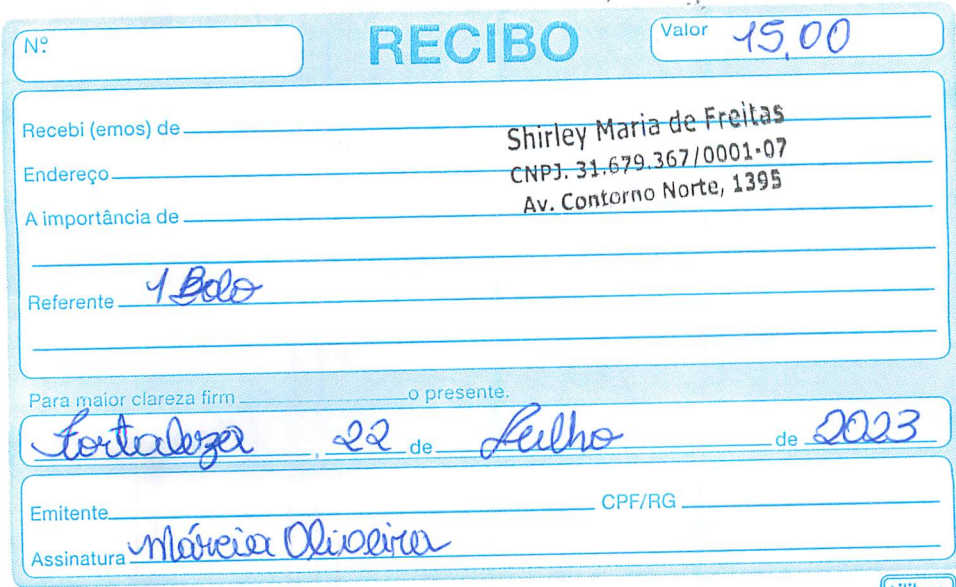 Nº
RECIBO
Valor 15,00
Recebi (emos) de
Shirley Maria de Freitas
Endereço
CNPJ. 31.679.367/0001-07
A importância de
Av. Contorno Norte, 1395
Referente 1 Bolo
Para maior clareza firm o presente.
Fortaleza, 22 de Julho de 2023
Emitente CPF/RG
Assinatura Márcia Oliveira